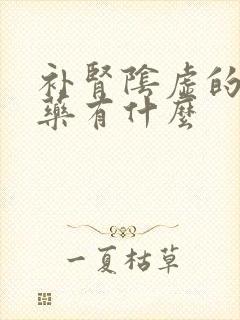 补腎陰虛的
藥有什麼
一夏枯草